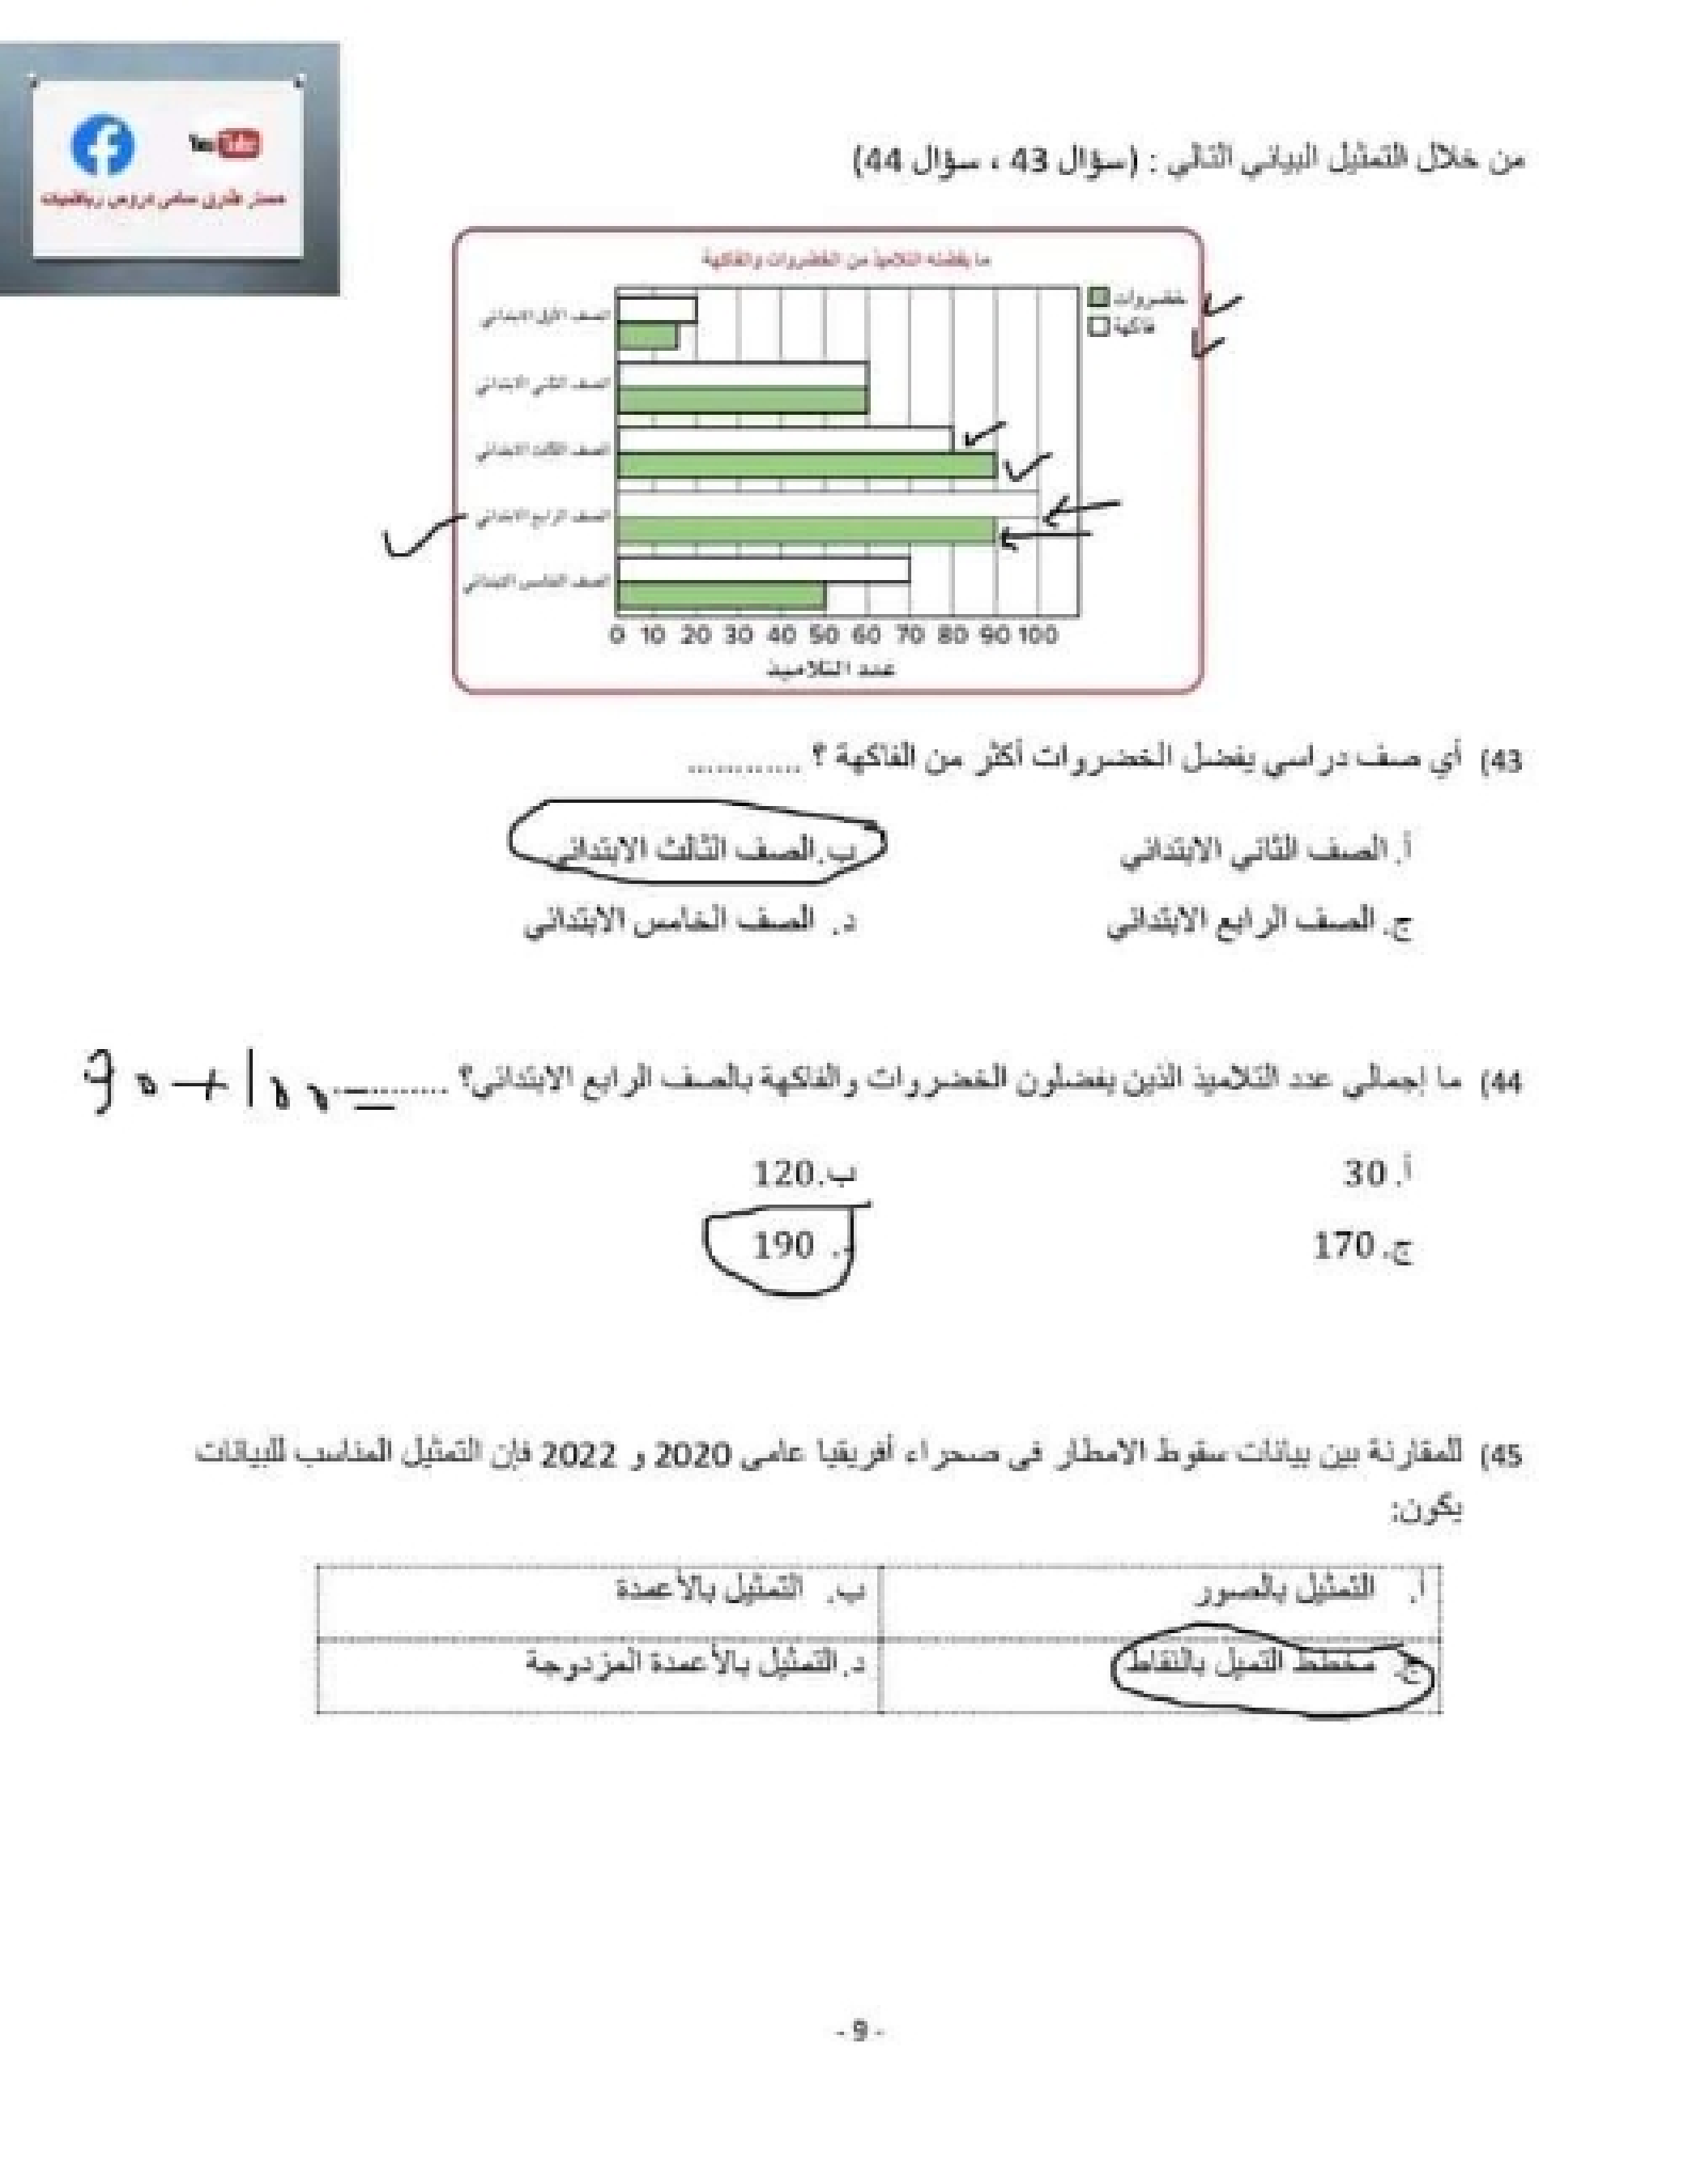 You Tube
مستر طارق سامى دروس رياضيات
من خلال التمثيل البياني التالي : (سؤال 43 ، سؤال 44)
ما يفضله التلاميذ من الخضروات والفاكهة
خضروات
فاكهة
الصف الأول الابتدائي
الصف الثاني الابتدائي
الصف الثالث الابتدائي
الصف الرابع الابتدائي
الصف الخامس الابتدائي
0 10 20 30 40 50 60 70 80 90 100
عدد التلاميذ
43) أي صف دراسي يفضل الخضروات أكثر من الفاكهة ؟ ............
أ. الصف الثاني الابتدائي ب.الصف الثالث الابتدائي
ج. الصف الرابع الابتدائي د. الصف الخامس الابتدائي
44) ما إجمالي عدد التلاميذ الذين يفضلون الخضروات والفاكهة بالصف الرابع الابتدائي؟ ............ 90+100
أ. 30 ب.120
ج. 170 د. 190
45) للمقارنة بين بيانات سقوط الامطار فى صحراء أفريقيا عامى 2020 و 2022 فإن التمثيل المناسب للبيانات
يكون:
أ. التمثيل بالصور ب. التمثيل بالأعمدة
ج. مخطط التميل بالنقاط د. التمثيل بالأعمدة المزدوجة
- 9 -